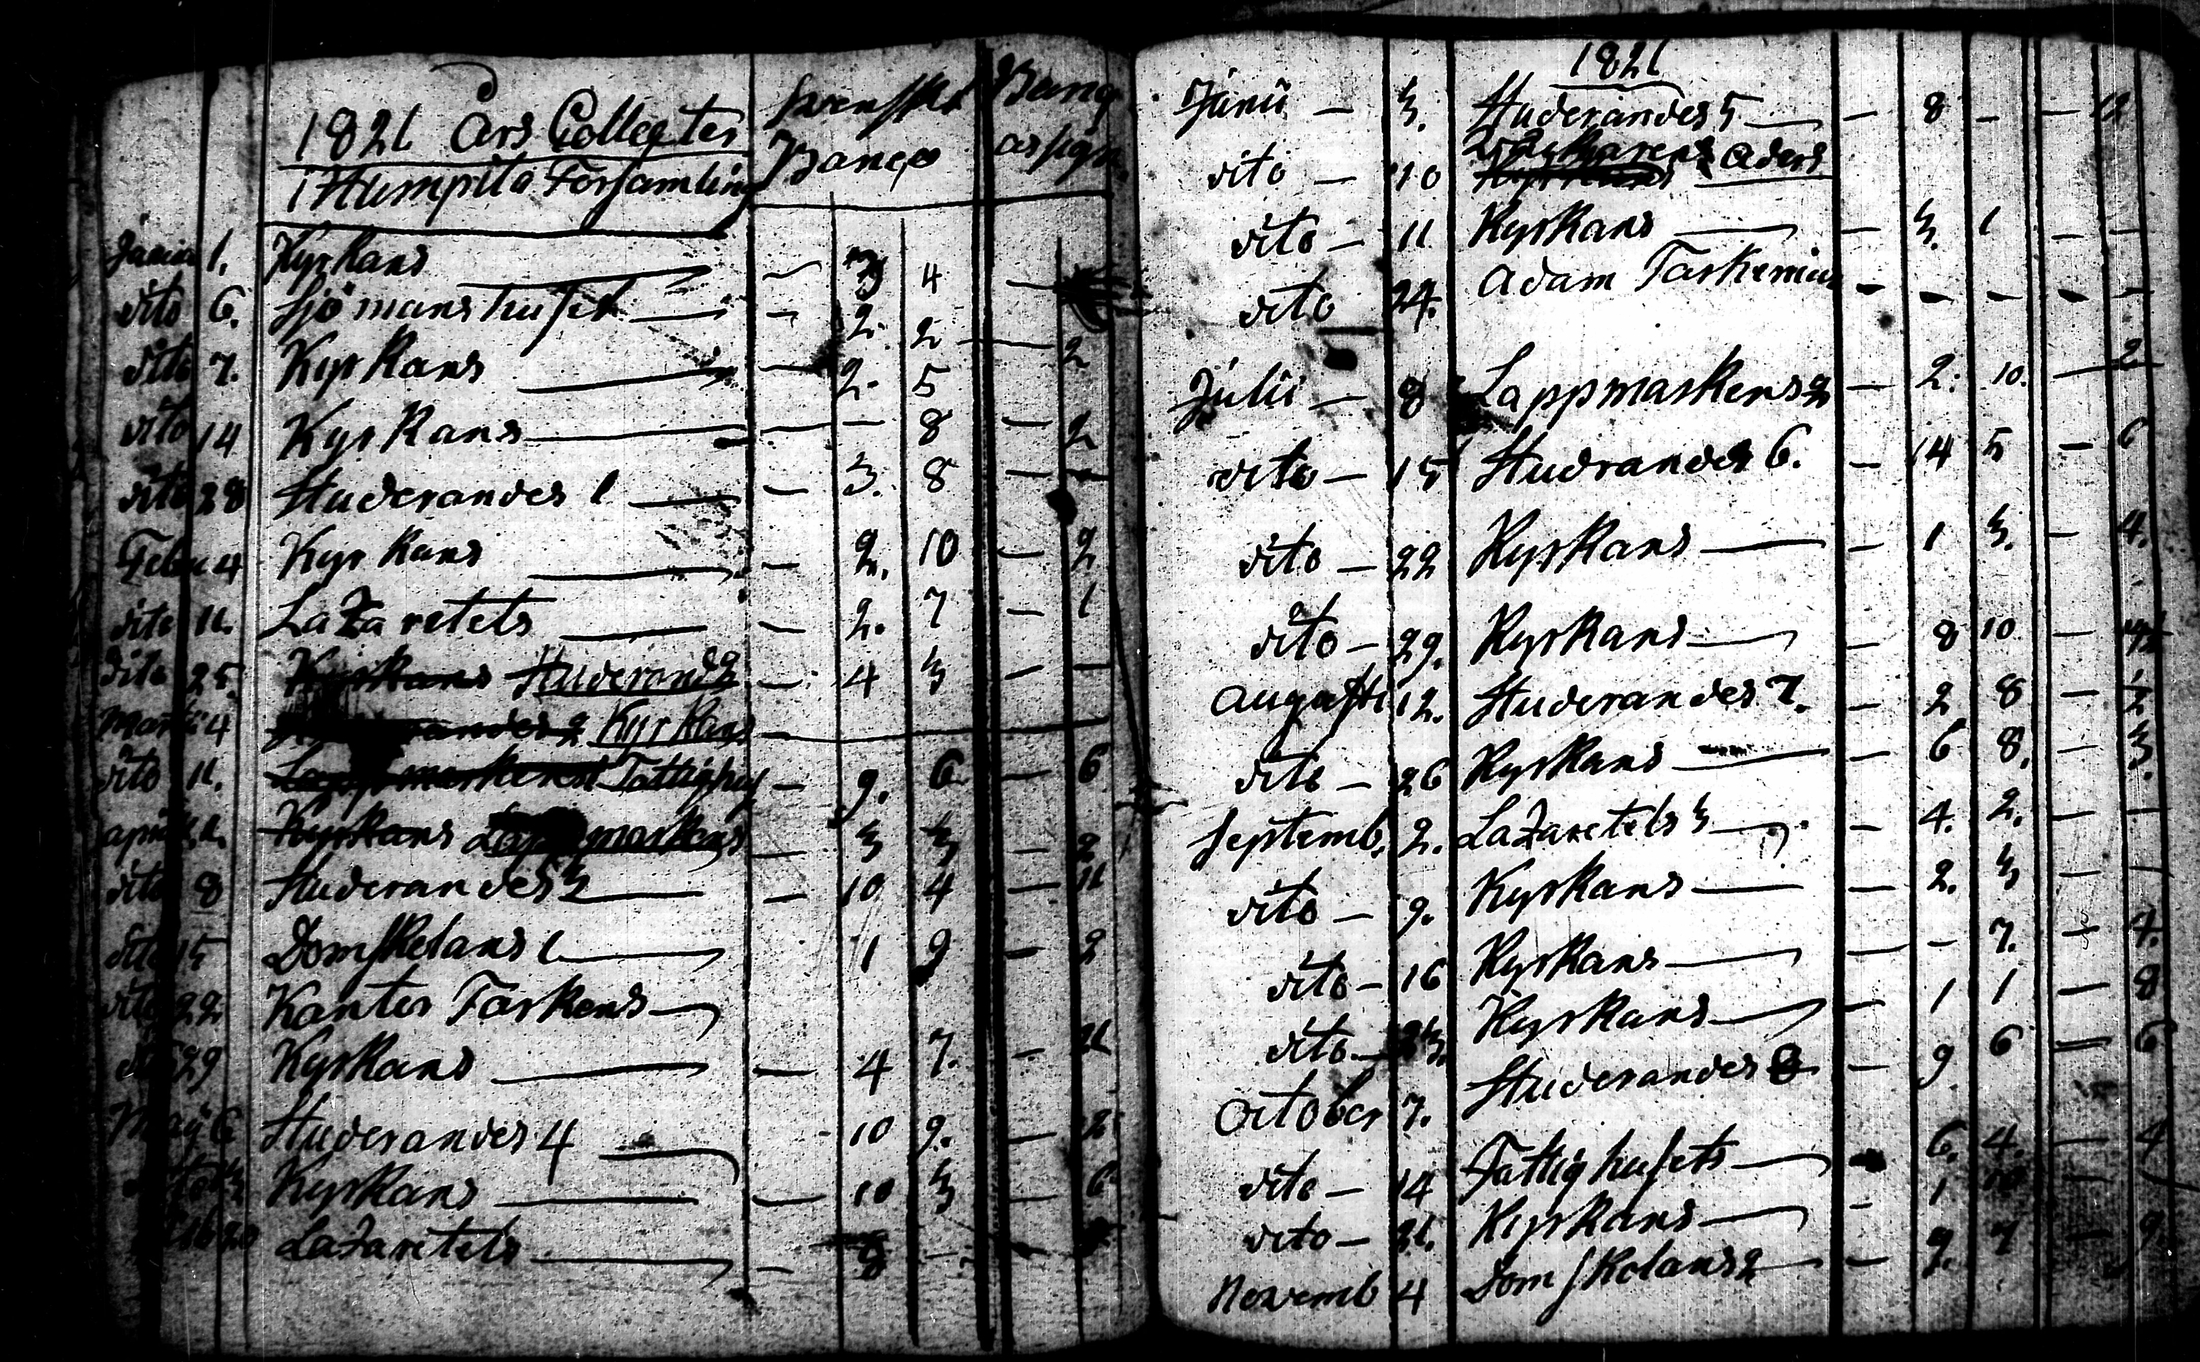 1821 Års Collecter
i Humpila Församling
Svenskt Banco
Banco assign.
Januar 1. Kyrkans — 3 4 —
dito 6. Sjömanshuset — 2. 2 — 2
dito 7. Kyrkans — 2. 5
dito 14 Kyrkans — — 8 — 2
dito 28 Studerandes 1 — 3. 8 — —
Febru 4 Kyrkans — 2. 10 — 2
dito 11. Lazaretets — 2. 7 — 1
dito 25. Kyrkans Studerand 2 — 4 3 — —
Martii 4 Kyrkans —
dito 11. Lappmarkens 1 Fattighus — 9. 6 — 6
april 1. Kyrkans Lappmarkens — 3 3 — 2
dito 8 Studerandes 3 — 10 4 — 11
dito 15 Domskolans 1 — 1 9 — 2
dito 22 Kantor Tarkens —
dito 29 Kyrkans — 4 7. — 11
Maÿ 6 Studerandes 4 — 10 9. — 2
dito 13 Kyrkans — 10 3 — 6
Lazaretets — 8 —
1821
Junii — 3. Studerandes 5 — 8 — — 12
dito — 10 Kyrkans
dito — 11 Kyrkans — 3. 1 — —
dito 24. Adam — — — — —
Julii — 8 Lappmarkens 2 — 2. 10. — 2
dito — 15 Studrandes 6. — 14 5 — 6
dito — 22 Kyrkans — 1 3. — 4.
dito — 29. Kyrkans — 8 10 —
Augusti 12. Studerandes 7. — 2 8 —
dito — 26 Kyrkans — 6 8. — 3.
Septemb. 2. Lazaretets 3 — 4. 2. — —
dito — 9. Kyrkans — 2. 3 — —
dito — 16 Kyrkans — — 7. — 4.
dito — 23. Kyrkans — 1 1 — 8
October 7. Studerandes 8 — 9. 6 — 6
dito — 14 Fattighusets — 6. 4. — 4
dito — 21. Kyrkans — 1 10
Novemb 4 Domskolans 2 — 9. 7 — 9.